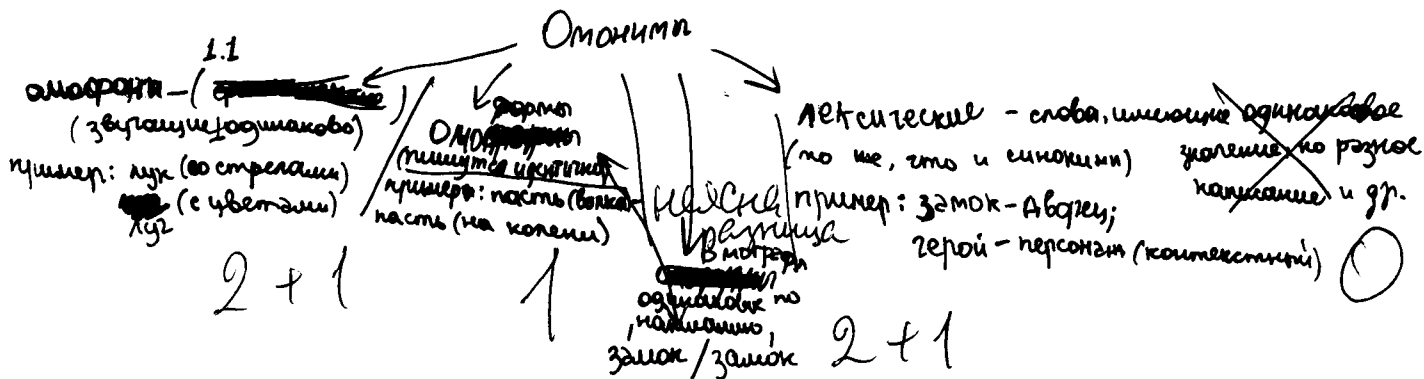 Омонимы
1.1
омофоны – (
(звучащие одинаково)
пример: лук (со стрелами)
луг (с цветами)
2 + 1
формы
ОМО
(пишутся идентично
примеры: пасть (волка)
пасть (на колени)
1
неясна
разница
омографы
одинаковые по
написанию,
за́мок / замо́к
2 + 1
лексические – слова, имеющие одинаковое
(то же, что и синонимы) значение, но разное
написание и др.
пример: замок – дворец;
герой – персонаж (контекстный)
0